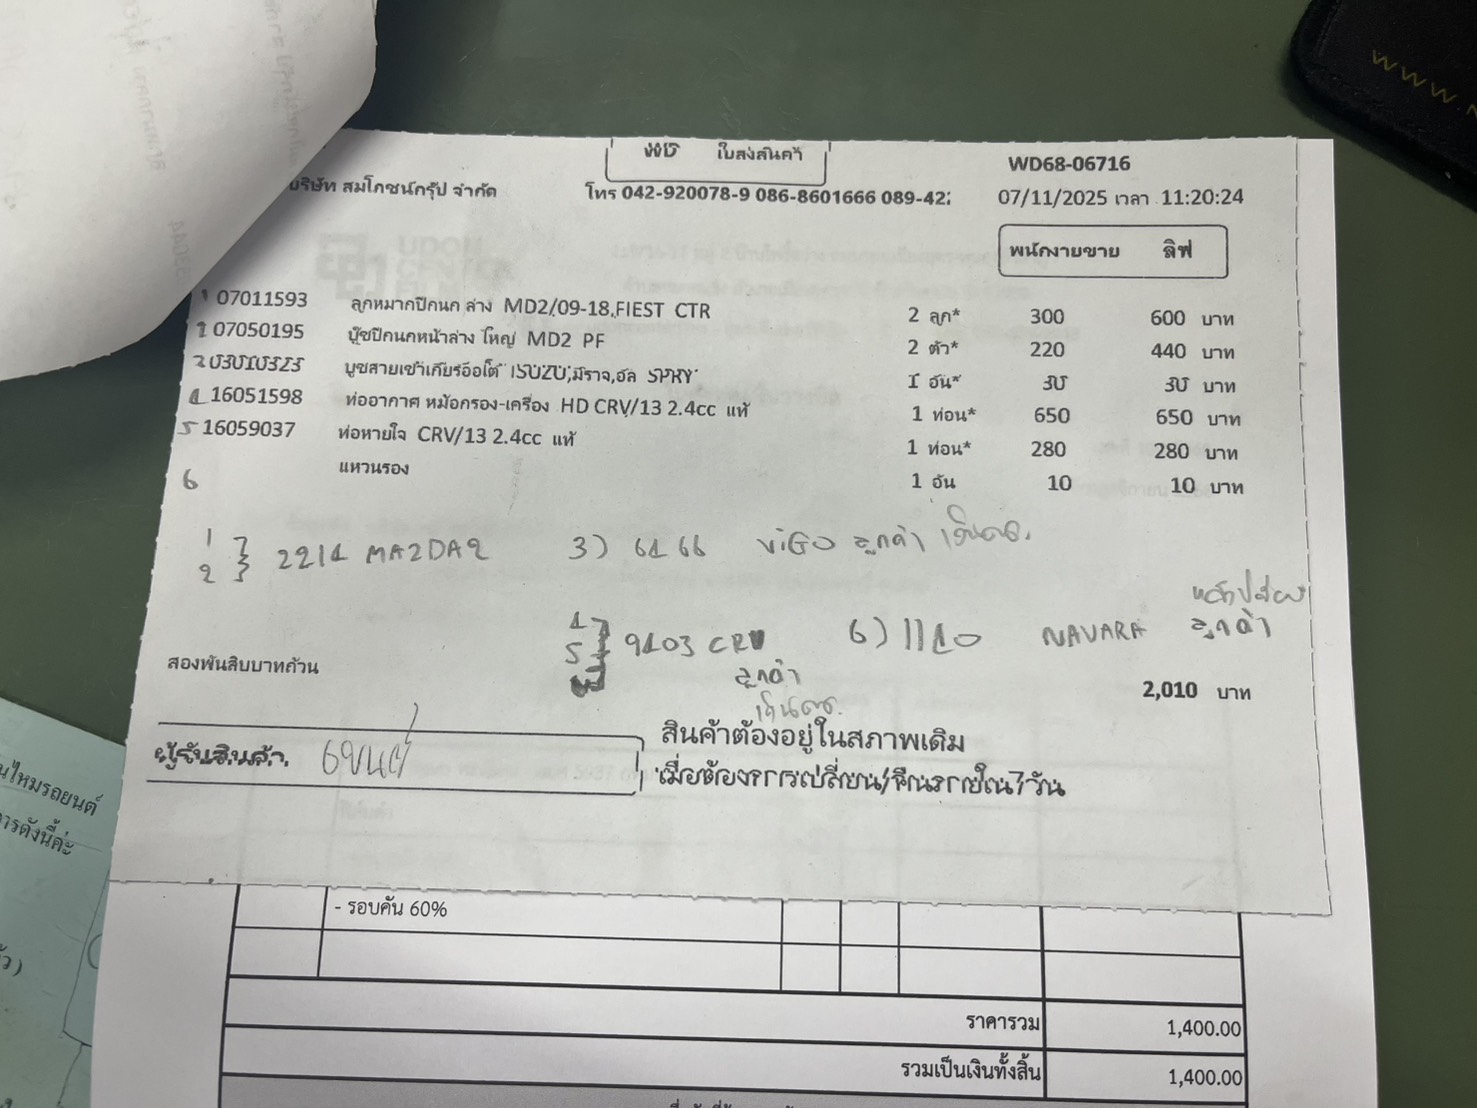 WD ใบส่งสินค้า
WD68-06716
บริษัท สมโภชน์กรุ๊ป จำกัด
โทร 042-920078-9 086-8601666 089-422
07/11/2025 เวลา 11:20:24
พนักงายขาย ลิฟ
1 07011593 ลูกหมากปีกนก ล่าง MD2/09-18,FIEST CTR 2 ลูก* 300 600 บาท
2 07050195 บู๊ชปีกนกหน้าล่าง ใหญ่ MD2 PF 2 ตัว* 220 440 บาท
3 03010323 บูชสายเข้าเกียร์ออโต้ ISUZU,มิราจ,อัล SPRY 1 อัน* 30 30 บาท
4 16051598 ท่ออากาศ หม้อกรอง-เครื่อง HD CRV/13 2.4cc แท้ 1 ท่อน* 650 650 บาท
5 16059037 ท่อหายใจ CRV/13 2.4cc แท้ 1 ท่อน* 280 280 บาท
6 แหวนรอง 1 อัน 10 10 บาท
1 2 } 2214 MAZDA2
3) 6466 ViGO ลูกค้า เงินสด.
4 5 } 9403 CRV ลูกค้า เงินสด.
6) 1140 NAVARA ลูกค้า
สองพันสิบบาทถ้วน
2,010 บาท
ผู้รับสินค้า
สินค้าต้องอยู่ในสภาพเดิม
เมื่อต้องการเปลี่ยน/คืนภายใน7วัน
นไหมรถยนต์
ารดังนี้ค่ะ
- รอบคัน 60%
ราคารวม 1,400.00
รวมเป็นเงินทั้งสิ้น 1,400.00
WWW.